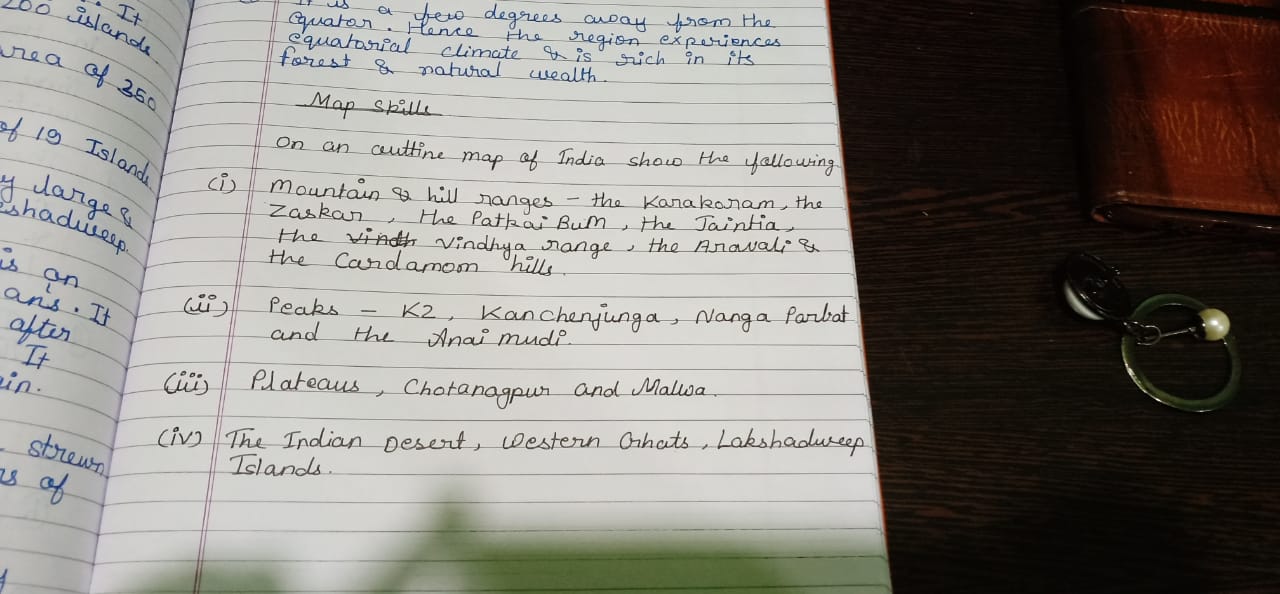 200 islands. It
area of 350
of 19 Island
y large &
shadweep.
is an
ans. It
after
It
in.
strewn
rs of
It is a few degrees away from the
equator. Hence the region experiences
equatorial climate & is rich in its
forest & natural wealth.
Map Skills
On an outline map of India show the following
(i) Mountain & hill ranges - the Karakoram, the
Zaskar, the Patkai Bum, the Jaintia,
the Vindh Vindhya range, the Aravali &
the Cardamom hills.
(ii) Peaks - K2, Kanchenjunga, Nanga Parbat
and the Anai mudi.
(iii) Plateaus, Chotanagpur and Malwa.
(iv) The Indian Desert, Western Ghats, Lakshadweep
Islands.